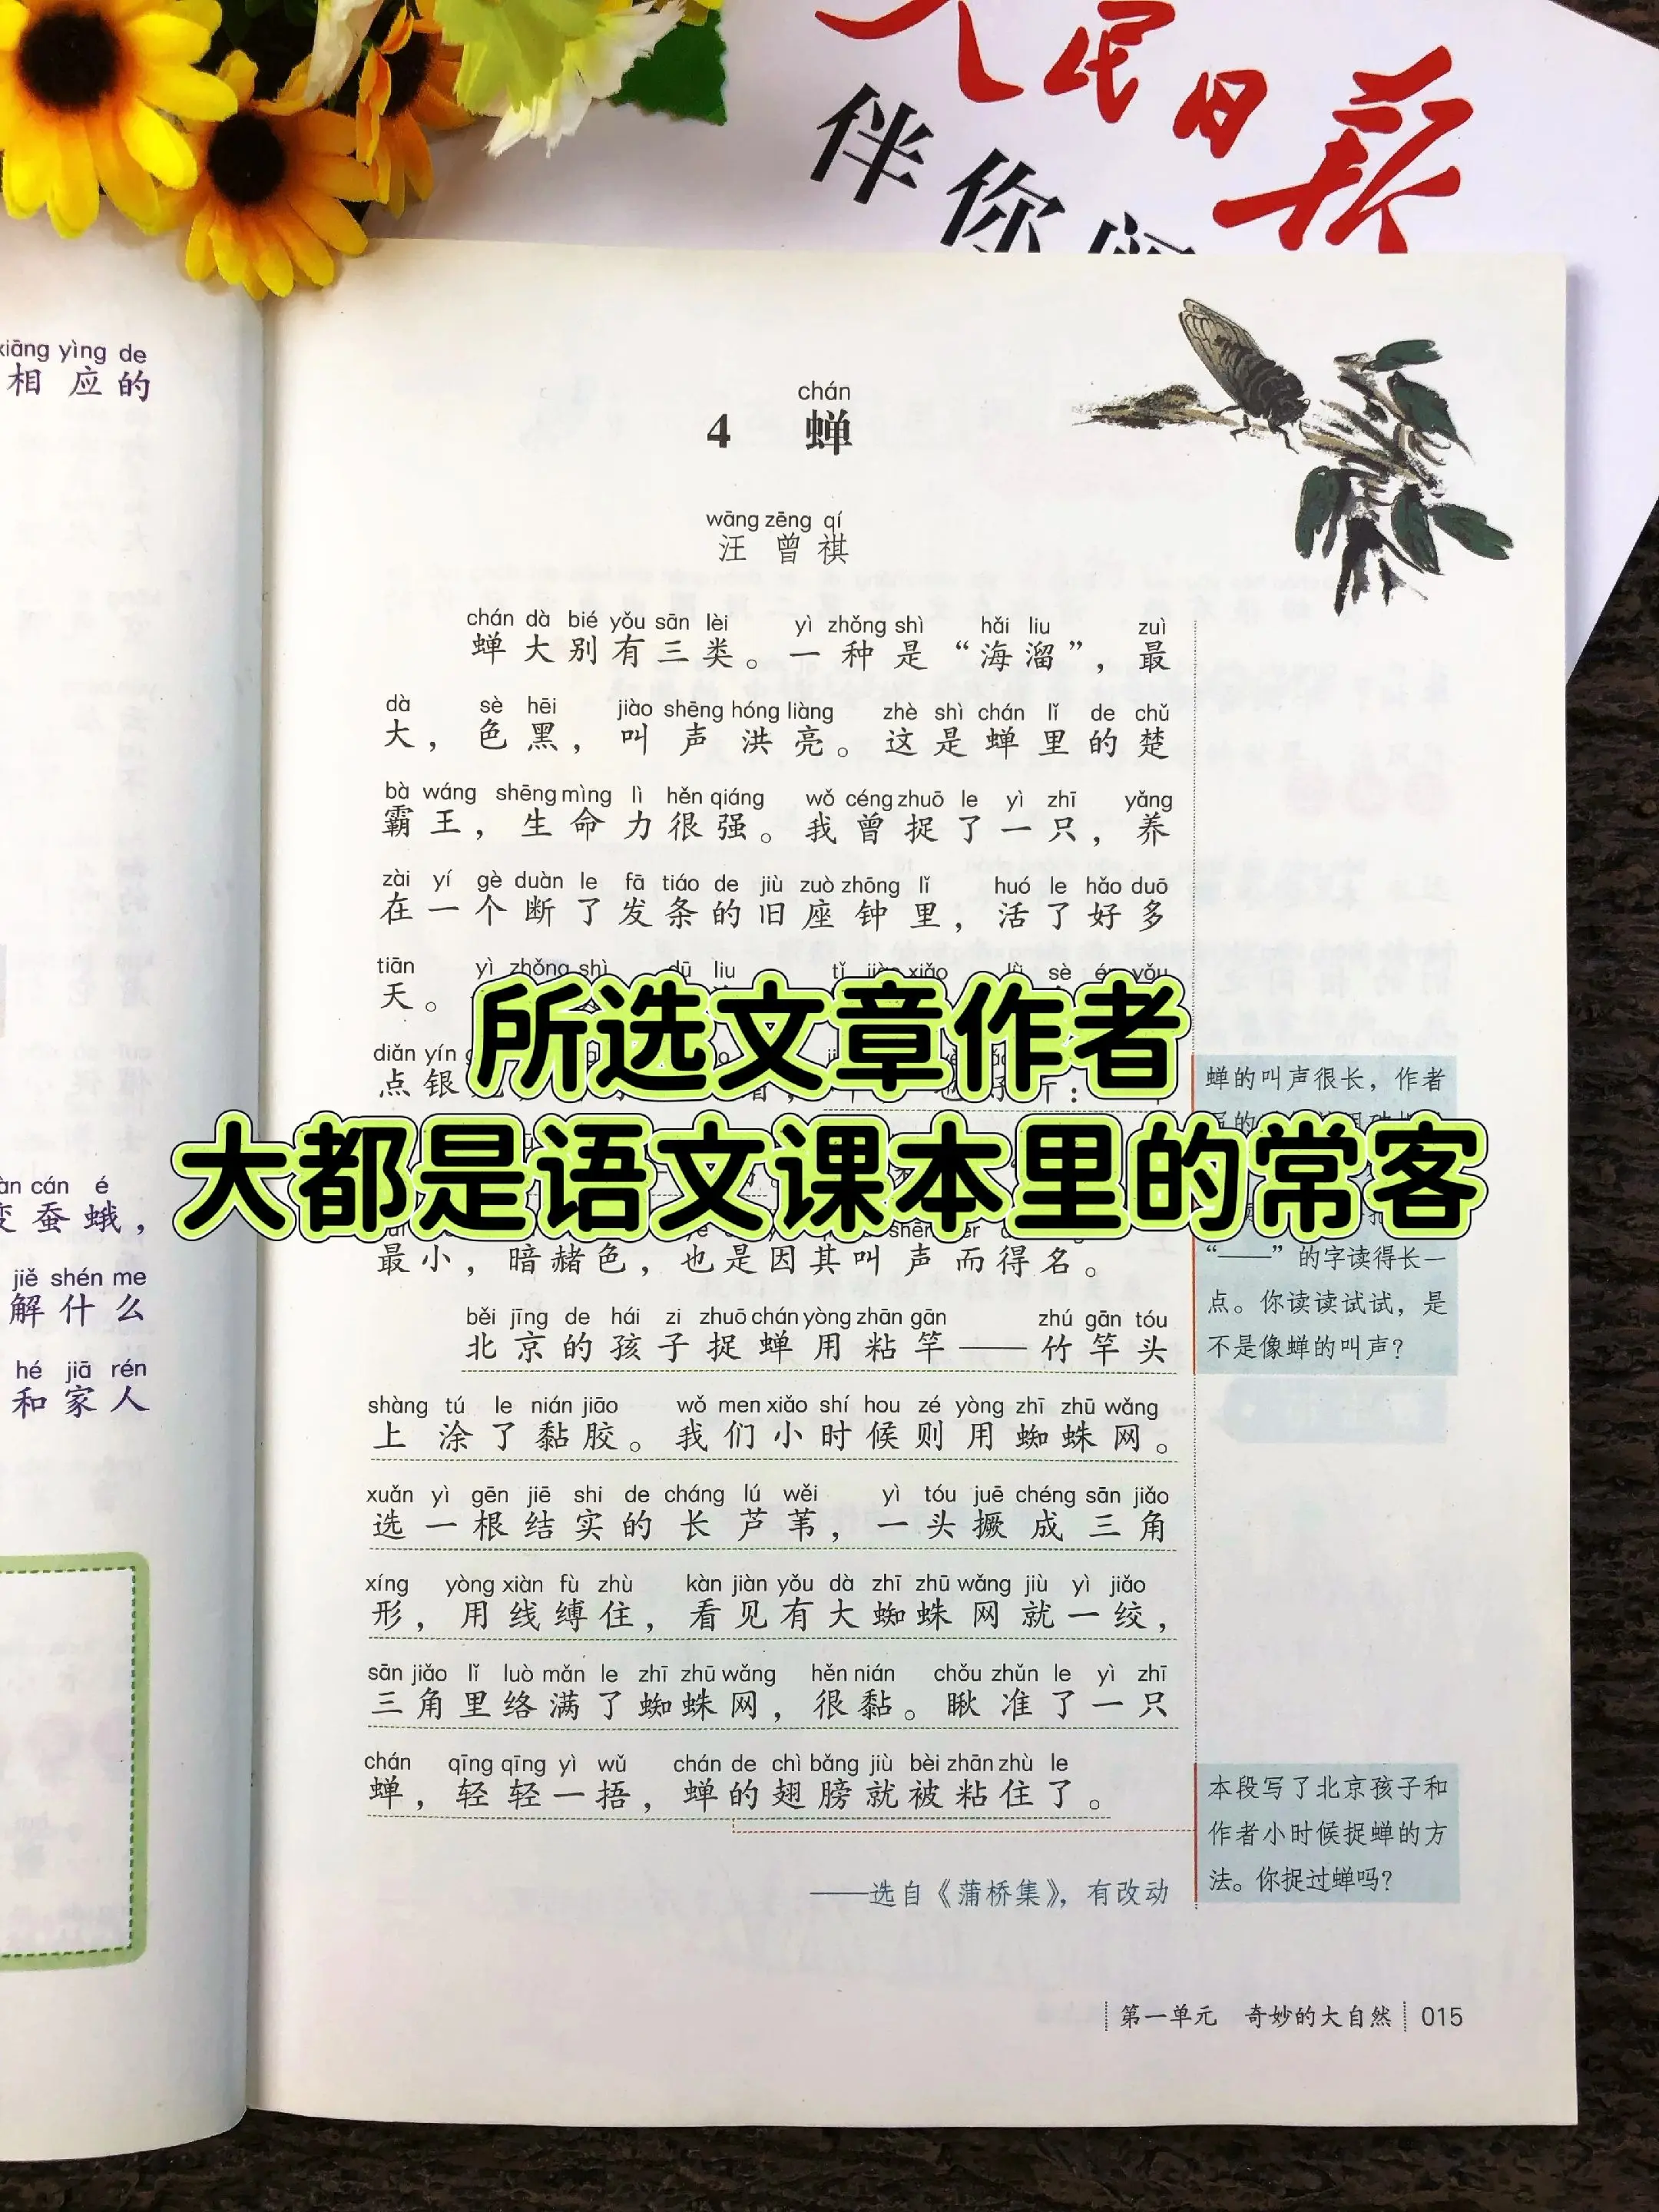 人民日报
伴你
xiāng yìng de
相应的
àn cán é
变蚕蛾，
jiě shén me
解什么
hé jiā rén
和家人
chán
4 蝉
wāng zēng qí
汪曾祺
chán dà bié yǒu sān lèi yì zhǒng shì hǎi liu zuì
蝉大别有三类。一种是“海溜”，最
dà sè hēi jiào shēng hóng liàng zhè shì chán lǐ de chǔ
大，色黑，叫声洪亮。这是蝉里的楚
bà wáng shēng mìng lì hěn qiáng wǒ céng zhuō le yì zhī yǎng
霸王，生命力很强。我曾捉了一只，养
zài yí gè duàn le fā tiáo de jiù zuò zhōng lǐ huó le hǎo duō
在一个断了发条的旧座钟里，活了好多
tiān yì zhǒng shì dū liu tǐ jiào xiǎo lǜ sè ér yǒu
天。
diǎn yín
点银
所选文章作者
大都是语文课本里的常客
最小，暗赭色，也是因其叫声而得名。
běi jīng de hái zi zhuō chán yòng zhān gān zhú gān tóu
北京的孩子捉蝉用粘竿——竹竿头
shàng tú le nián jiāo wǒ men xiǎo shí hou zé yòng zhī zhū wǎng
上涂了黏胶。我们小时候则用蜘蛛网。
xuǎn yì gēn jiē shi de cháng lú wěi yì tóu juē chéng sān jiǎo
选一根结实的长芦苇，一头撅成三角
xíng yòng xiàn fù zhù kàn jiàn yǒu dà zhī zhū wǎng jiù yì jiǎo
形，用线缚住，看见有大蜘蛛网就一绞，
sān jiǎo lǐ luò mǎn le zhī zhū wǎng hěn nián chǒu zhǔn le yì zhī
三角里络满了蜘蛛网，很黏。瞅准了一只
chán qīng qīng yì wǔ chán de chì bǎng jiù bèi zhān zhù le
蝉，轻轻一捂，蝉的翅膀就被粘住了。
——选自《蒲桥集》，有改动
蝉的叫声很长，作者
“——”的字读得长一
点。你读读试试，是
不是像蝉的叫声？
本段写了北京孩子和
作者小时候捉蝉的方
法。你捉过蝉吗？
第一单元 奇妙的大自然 015